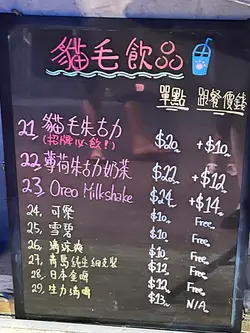 貓毛飲品
單點 跟餐價錢
21. 貓毛朱古力 $20 +$10
(招牌必飲!)
22. 薄荷朱古力奶茶 $22 +$12
23. Oreo Milkshake $24 +$14
24. 可樂 $10 Free
25. 雪碧 $10 Free
26. $10 Free
27. 青島純生 $12 Free
28. 日本 $12 Free
29. 生力 $13 N/A